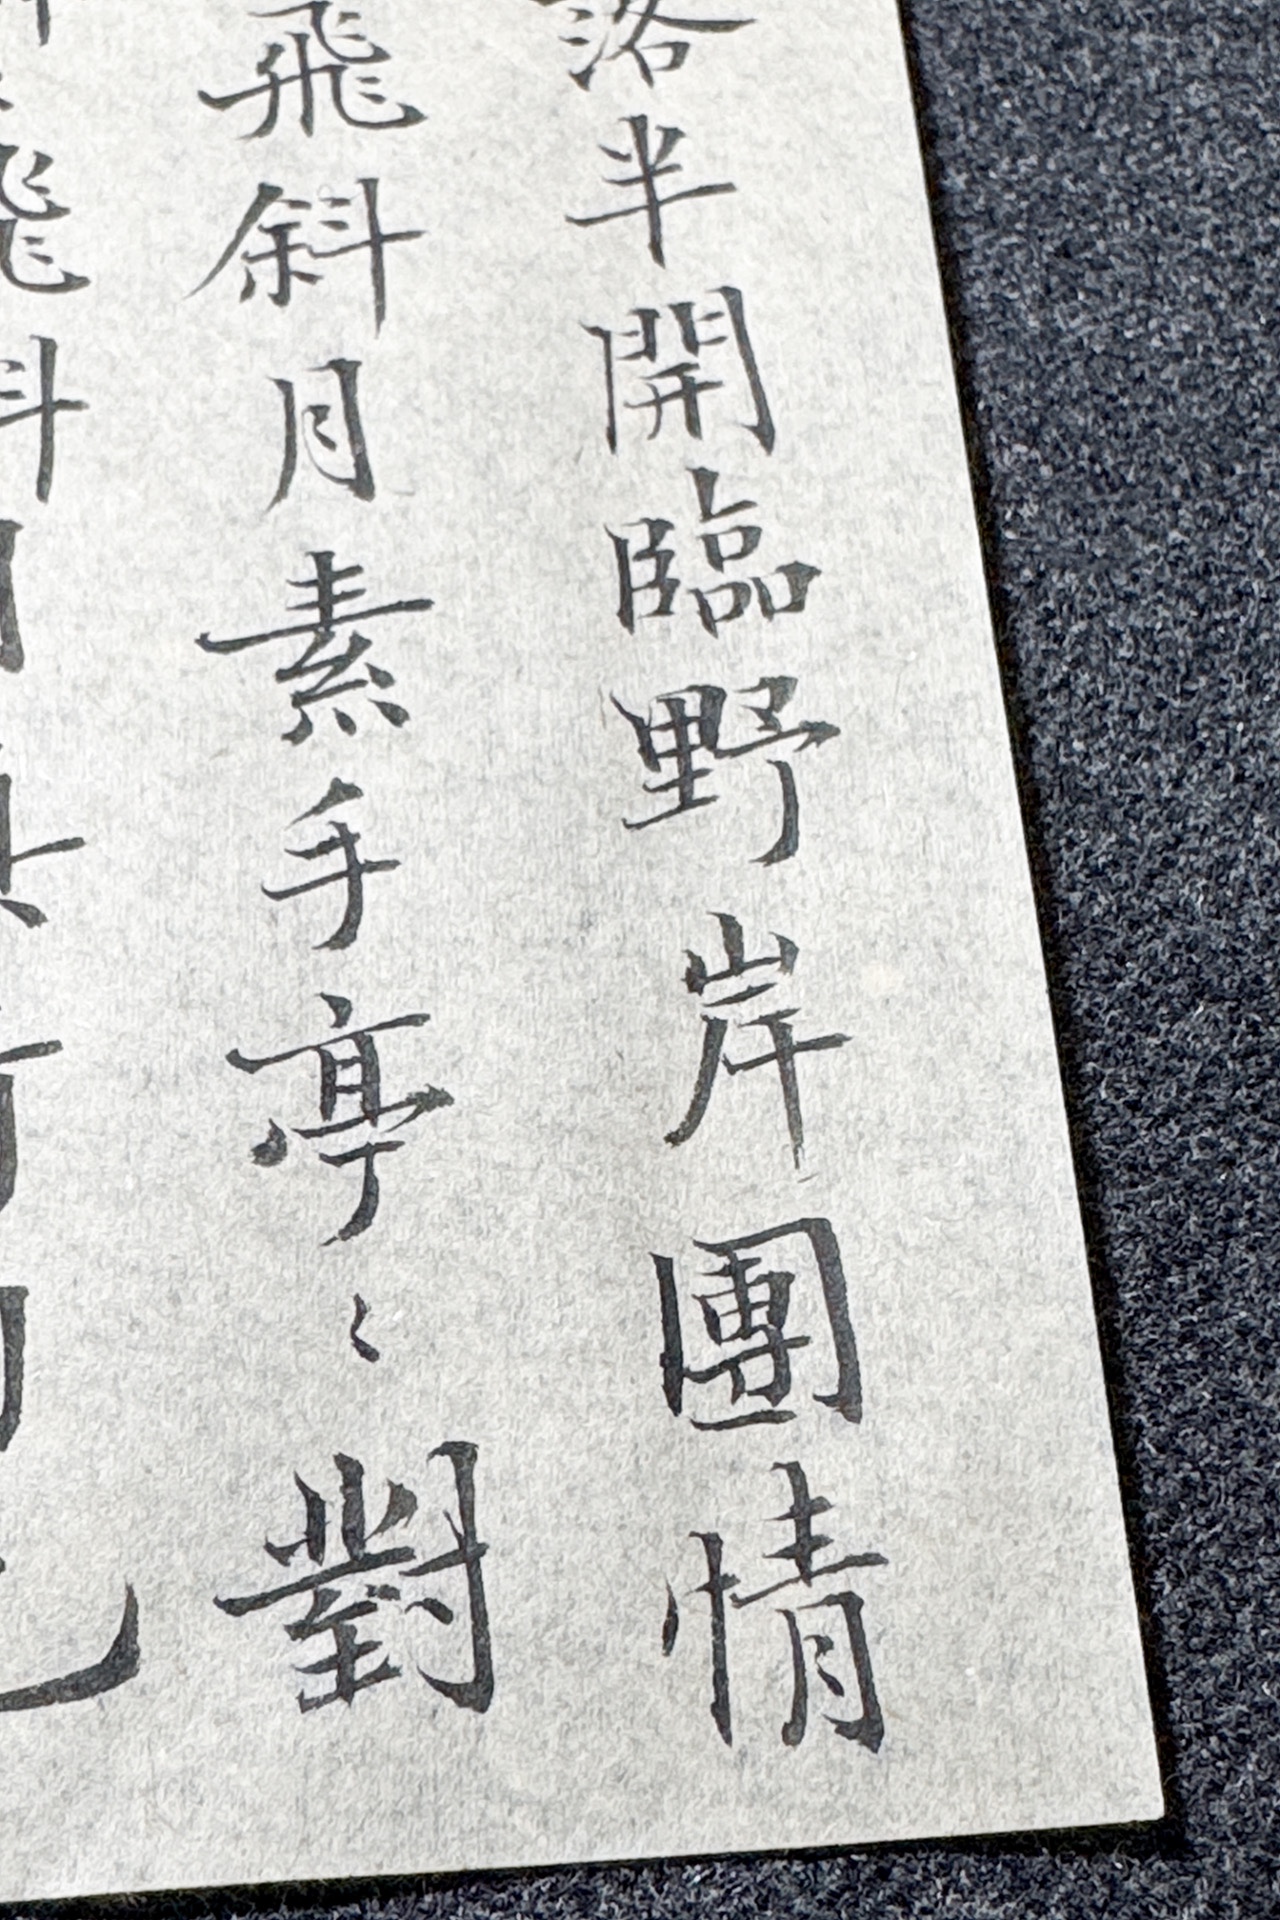 落半開臨野岸團情
飛斜月素手亭〻對
飛斜月